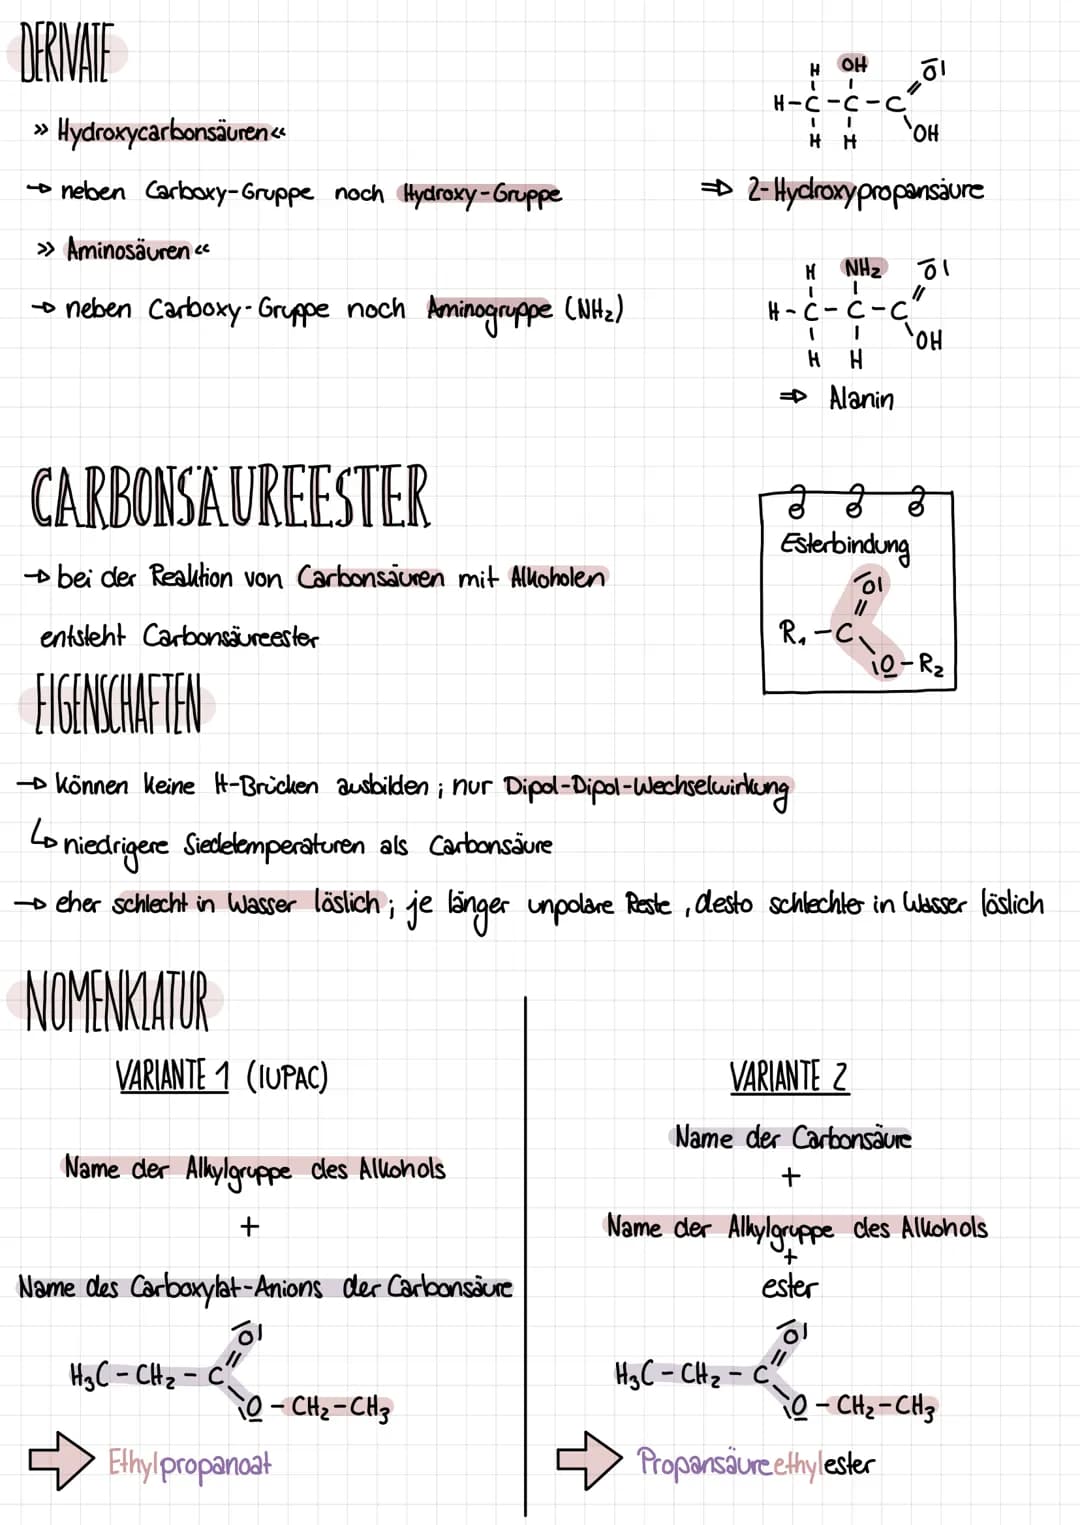 DERIVATE
» Hydroxycarbonsäuren «
→ neben Carboxy-Gruppe noch Hydroxy-Gruppe
H OH O
H-C-C-C
H H OH
⇒ 2-Hydroxypropansäure
» Aminosäuren «
→ neben Carboxy-Gruppe noch Aminogruppe (NH₂)
H NH₂ O
H-C-C-C
H H OH
⇒ Alanin
CARBONSÄUREESTER
→ bei der Reaktion von Carbonsäuren mit Alkoholen
entsteht Carbonsäureester
Esterbindung
O
R₁-C
O-R₂
EIGENSCHAFTEN
→ können keine H-Brücken ausbilden; nur Dipol-Dipol-Wechselwirkung
↳ niedrigere Siedetemperaturen als Carbonsäure
→ eher schlecht in Wasser löslich; je länger unpolare Reste, desto schlechter in Wasser löslich
NOMENKLATUR
VARIANTE 1 (IUPAC)
Name der Alkylgruppe des Alkohols
+
Name des Carboxylat-Anions der Carbonsäure
O
H₃C-CH₂-C
O-CH₂-CH₃
Ethylpropanoat
VARIANTE 2
Name der Carbonsäure
+
Name der Alkylgruppe des Alkohols
+
ester
O
H₃C-CH₂-C
O-CH₂-CH₃
Propansäureethylester